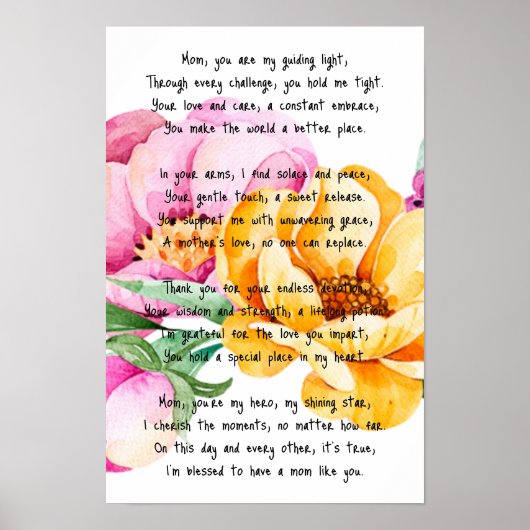 Mom, you are my guiding light,
Through every challenge, you hold me tight.
Your love and care, a constant embrace,
You make the world a better place.
In your arms, I find solace and peace,
Your gentle touch, a sweet release.
You support me with unwavering grace,
A mother's love, no one can replace.
Thank you for your endless devotion,
Your wisdom and strength, a lifelong potion.
I'm grateful for the love you impart,
You hold a special place in my heart.
Mom, you're my hero, my shining star,
I cherish the moments, no matter how far.
On this day and every other, it's true,
I'm blessed to have a mom like you.